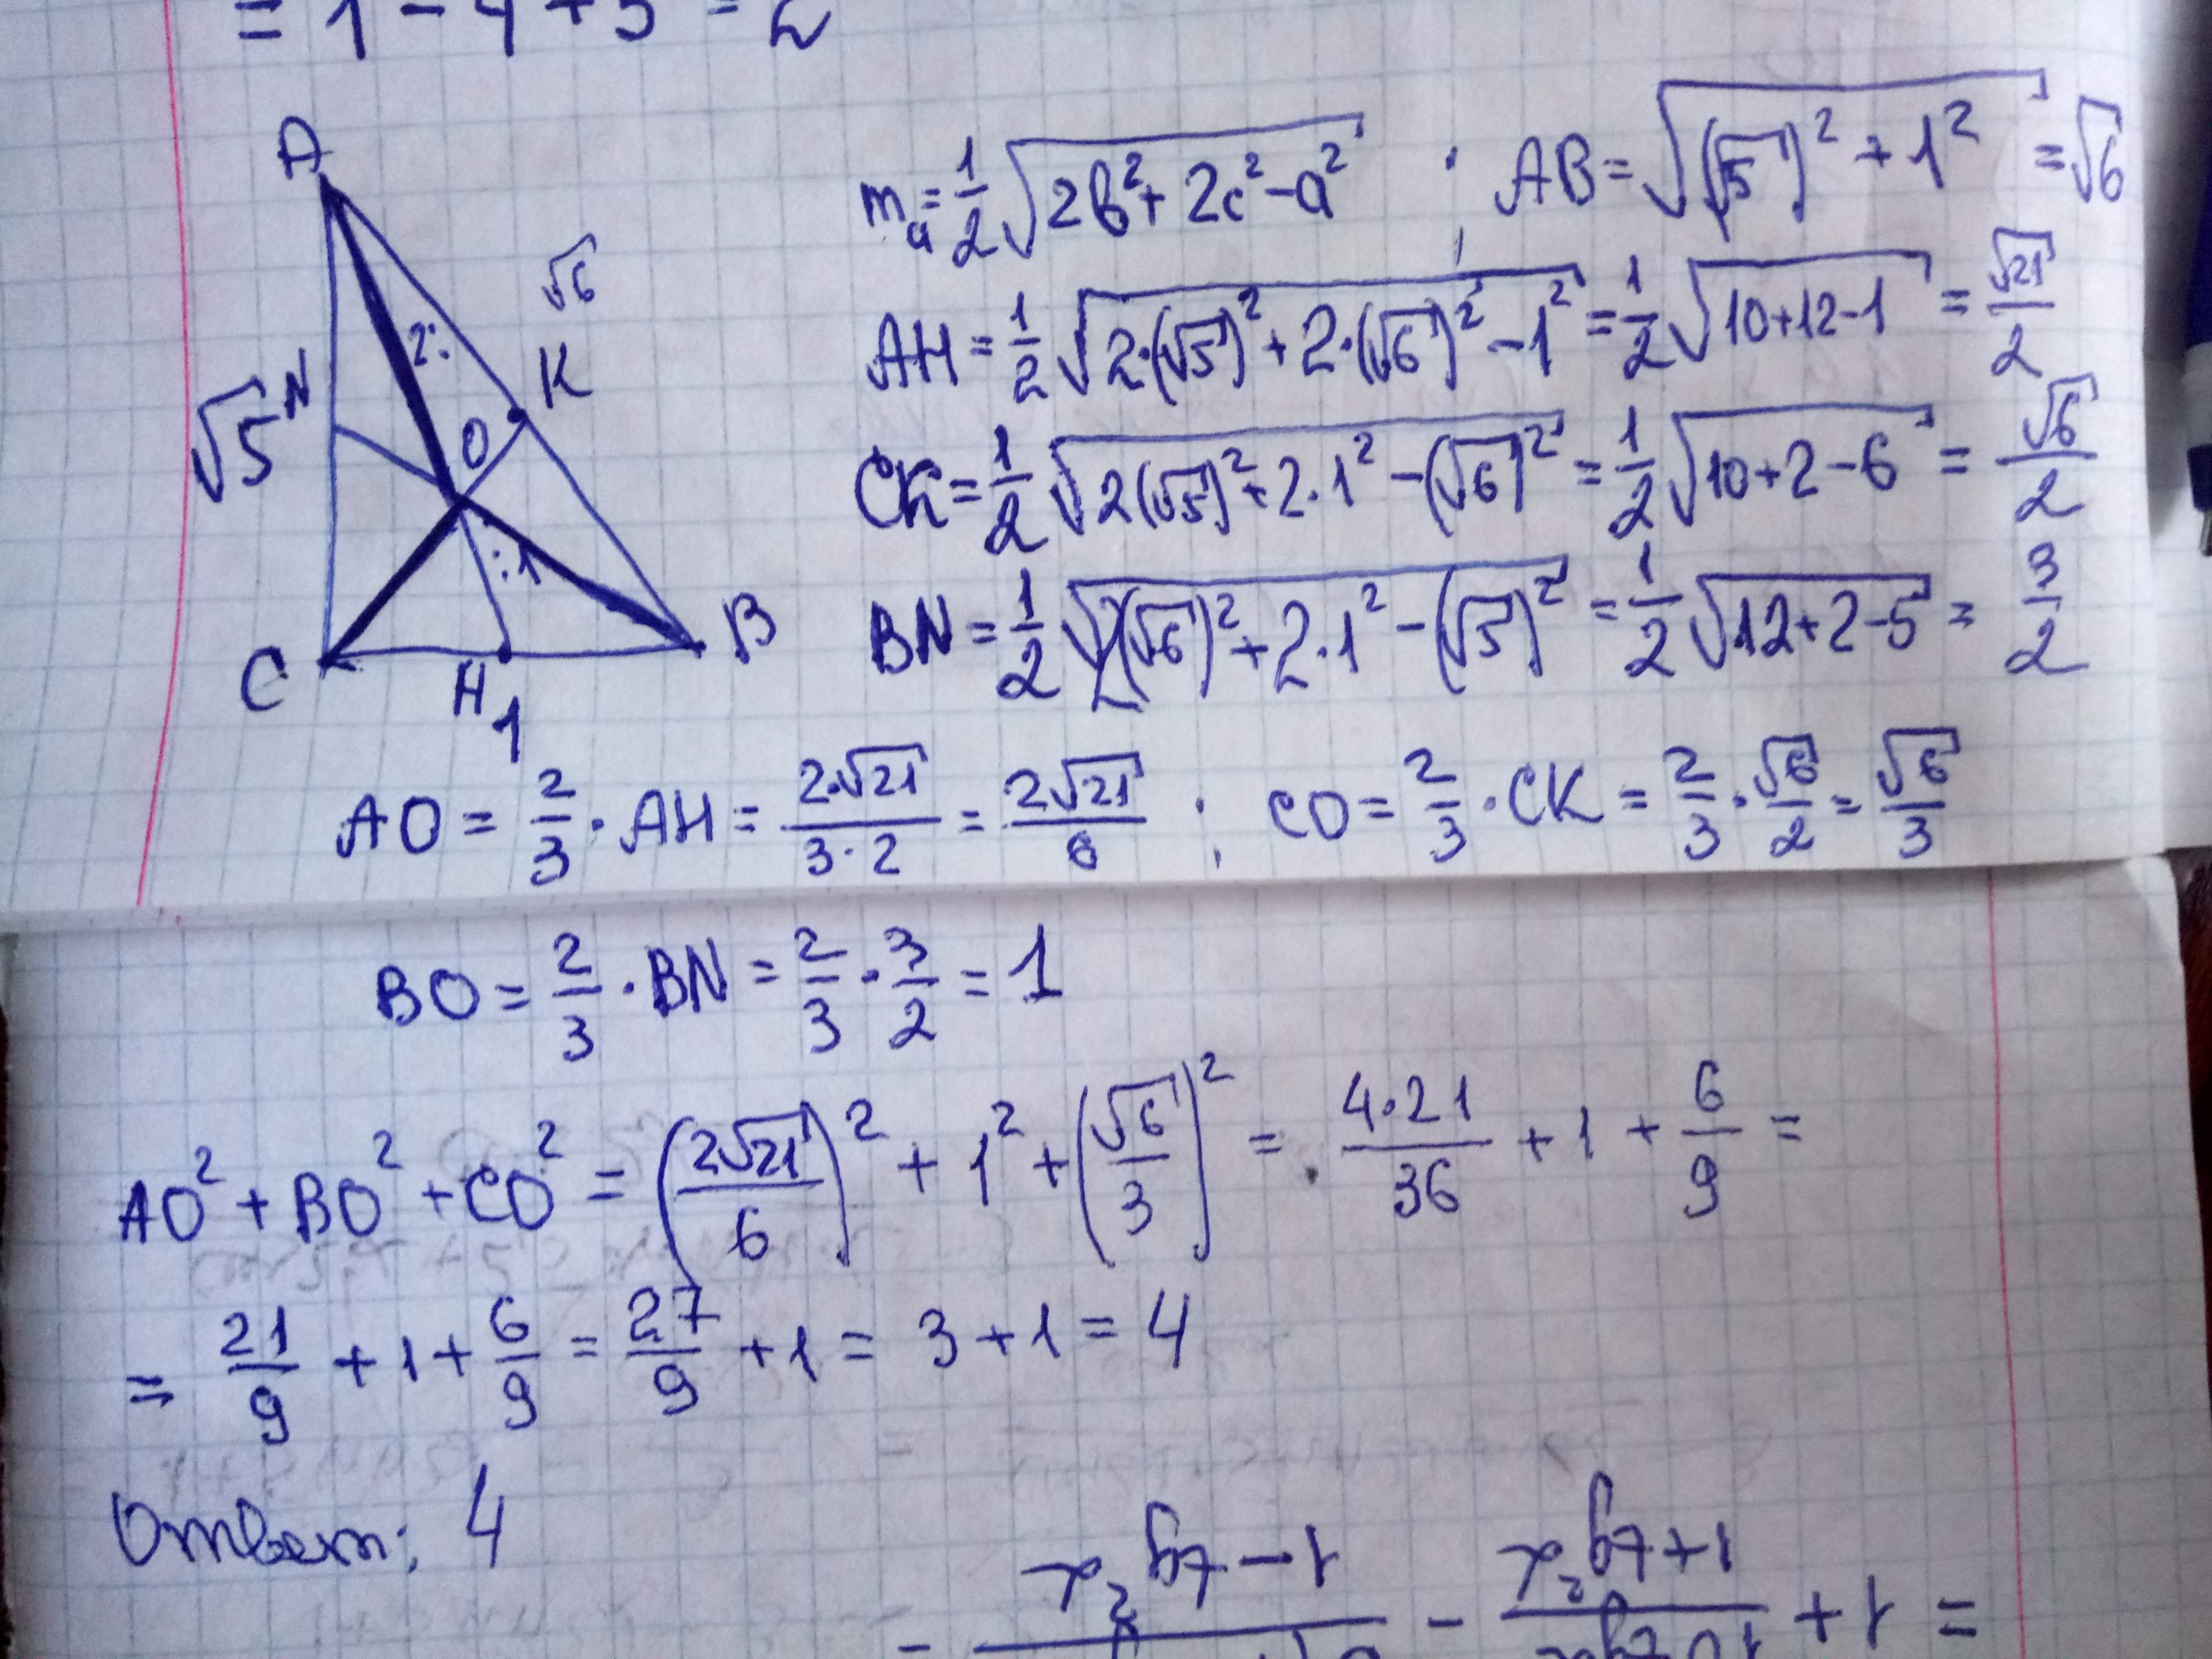 = 1 - 4 + 5 = 2
A
√6
2:
K
N
√5
O
:1
C
H
B
1
mₐ = 1/2 √(2b² + 2c² - a²) ; AB = √((√5)² + 1²) = √6
AH = 1/2 √(2·(√5)² + 2·(√6)² - 1²) = 1/2 √(10+12-1) = √21/2
CK = 1/2 √(2(√5)² + 2·1² - (√6)²) = 1/2 √(10+2-6) = √6/2
BN = 1/2 √(2(√6)² + 2·1² - (√5)²) = 1/2 √(12+2-5) = 3/2
AO = 2/3 · AH = 2·√21/3·2 = 2√21/6 ; CO = 2/3 · CK = 2/3 · √6/2 = √6/3
BO = 2/3 · BN = 2/3 · 3/2 = 1
AO² + BO² + CO² = (2√21/6)² + 1² + (√6/3)² = 4·21/36 + 1 + 6/9 =
= 21/9 + 1 + 6/9 = 27/9 + 1 = 3 + 1 = 4
Ответ: 4